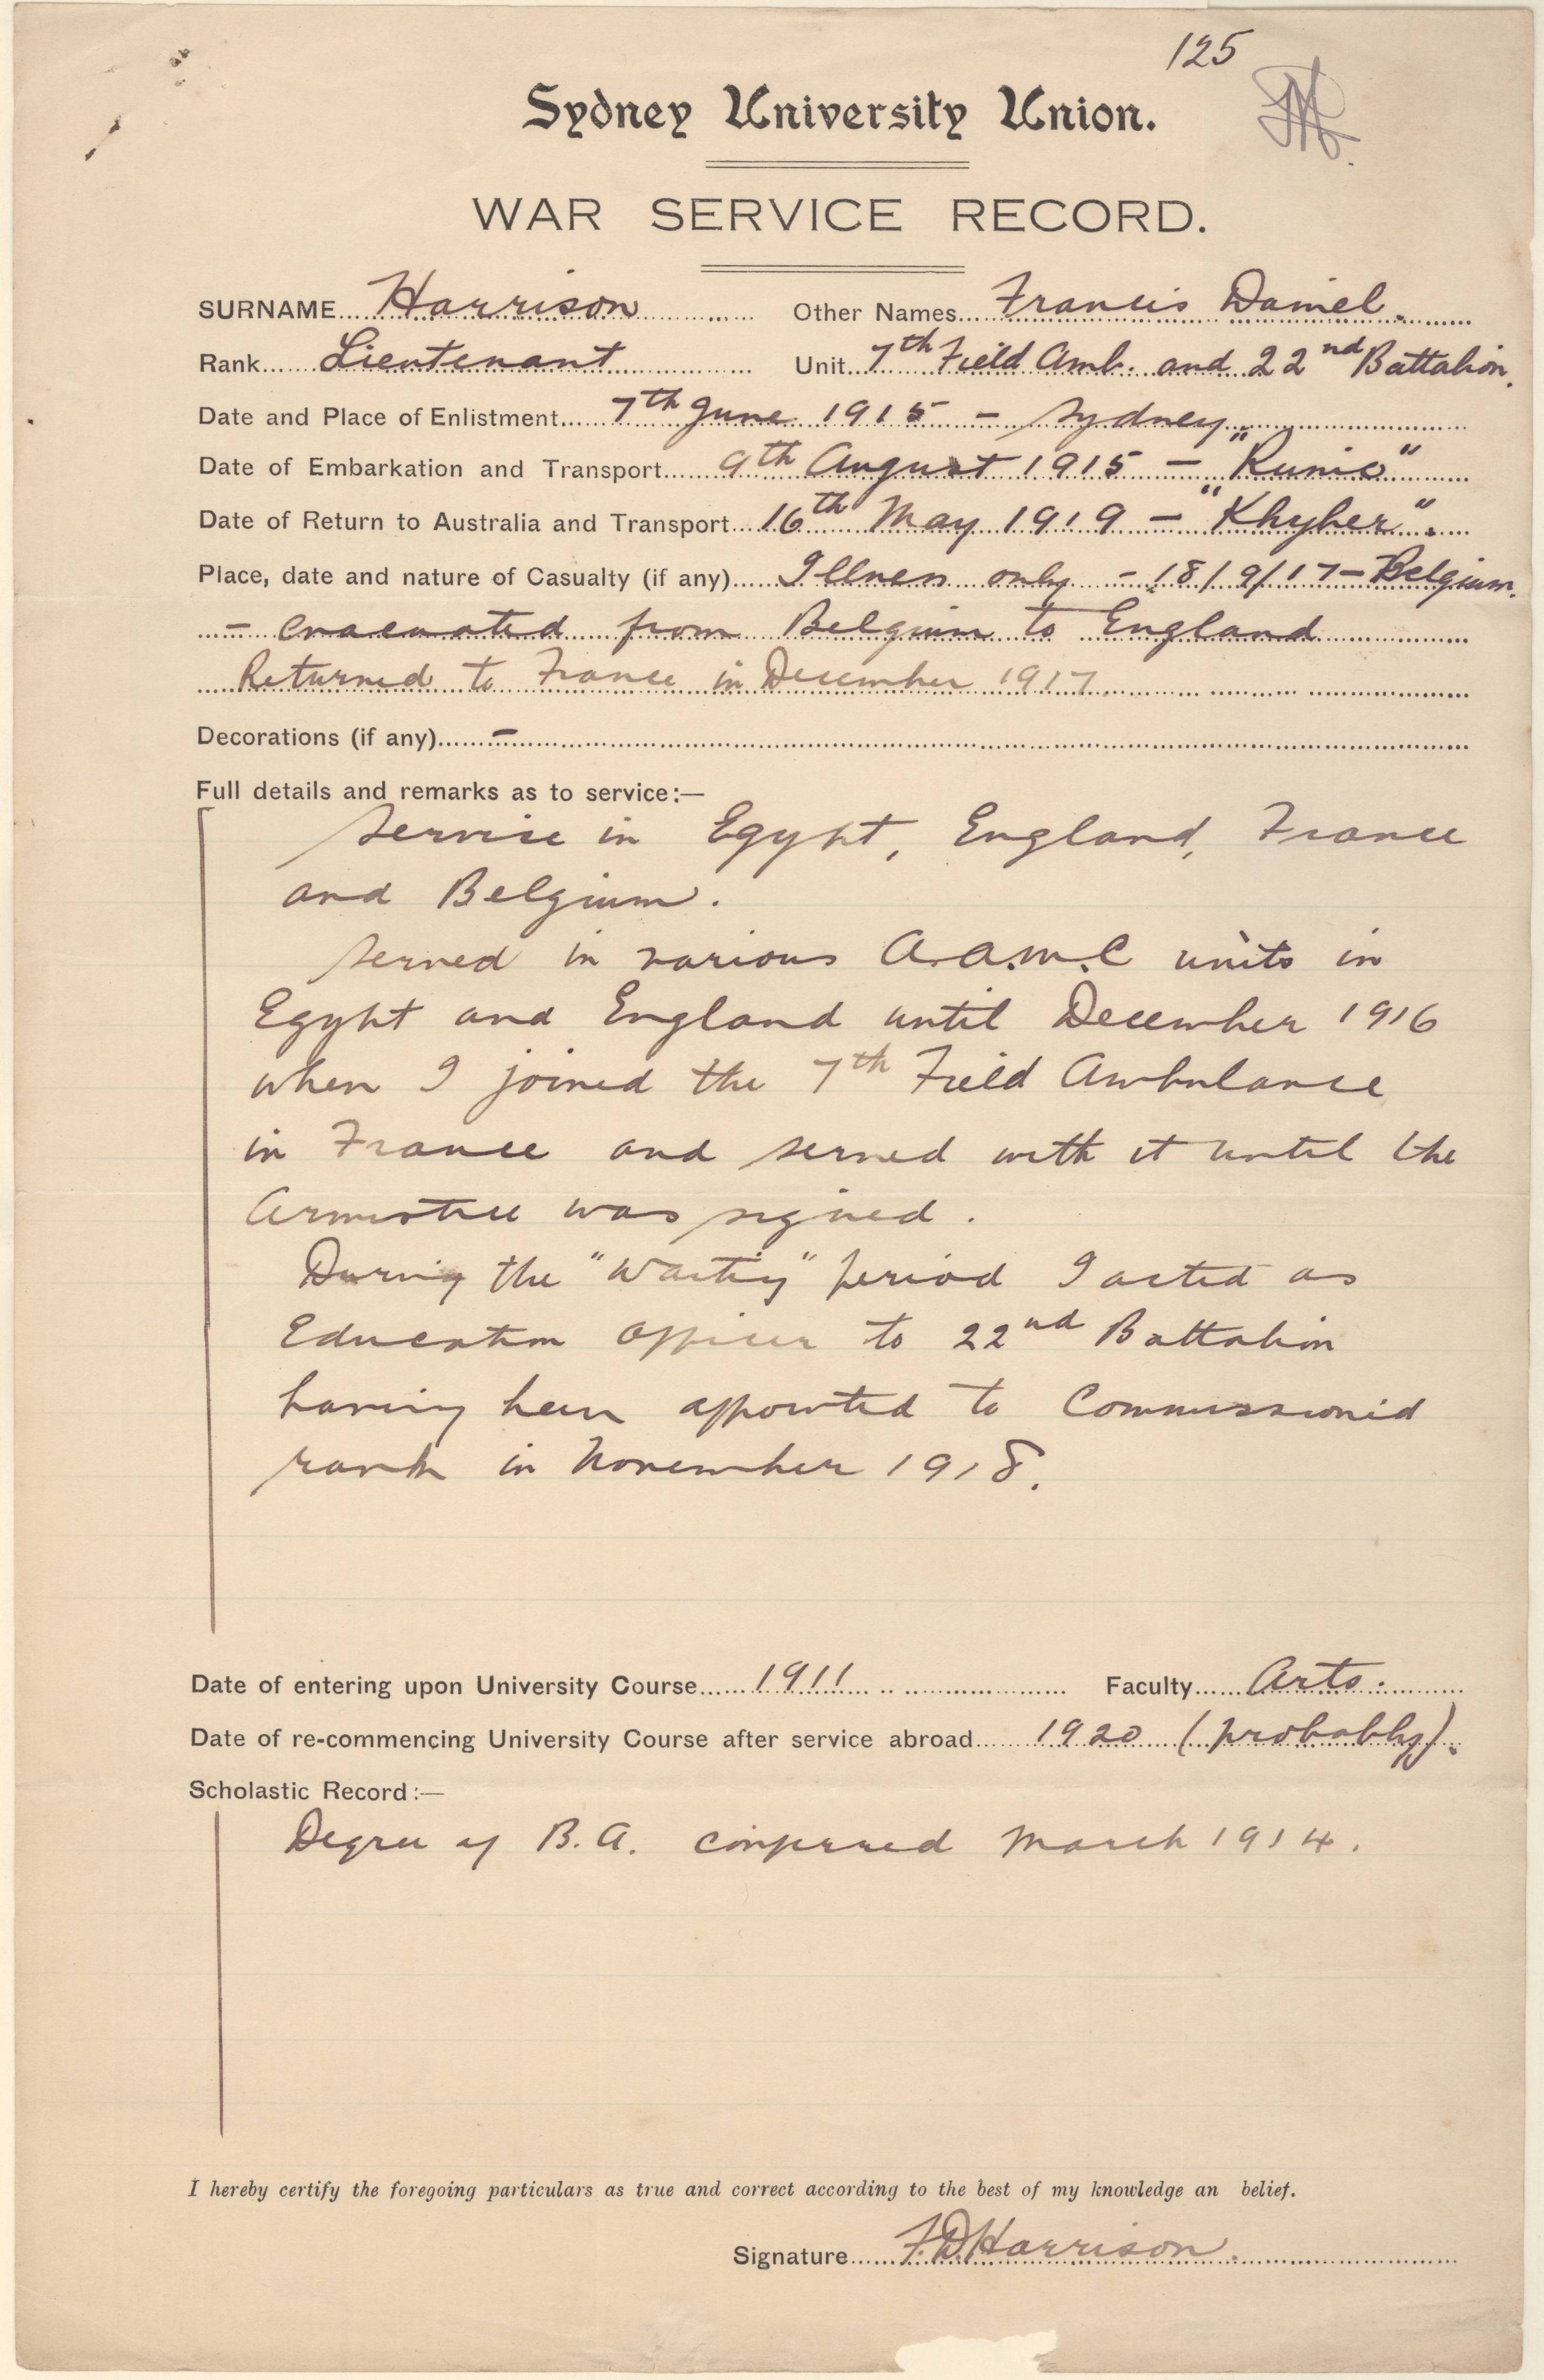 125
Sydney University Union.
WAR SERVICE RECORD.
SURNAME Harrison Other Names Francis Daniel.
Rank Lieutenant Unit 7th Field Amb. and 22nd Battalion.
Date and Place of Enlistment 7th June 1915 - Sydney
Date of Embarkation and Transport 9th August 1915 - "Runic"
Date of Return to Australia and Transport 16th May 1919 - "Khyber".
Place, date and nature of Casualty (if any) Illness only - 18/9/17 - Belgium.
- evacuated from Belgium to England
Returned to France in December 1917
Decorations (if any) -
Full details and remarks as to service:—
Service in Egypt, England, France
and Belgium.
Served in various A.A.M.C units in
Egypt and England until December 1916
when I joined the 7th Field Ambulance
in France and served with it until the
Armistice was signed.
During the "Waiting" period I acted as
Education Officer to 22nd Battalion
having been appointed to Commissioned
rank in November 1918.
Date of entering upon University Course 1911 Faculty Arts.
Date of re-commencing University Course after service abroad 1920 (probably).
Scholastic Record:—
Degree of B.A. conferred March 1914.
I hereby certify the foregoing particulars as true and correct according to the best of my knowledge an belief.
Signature F.D. Harrison.